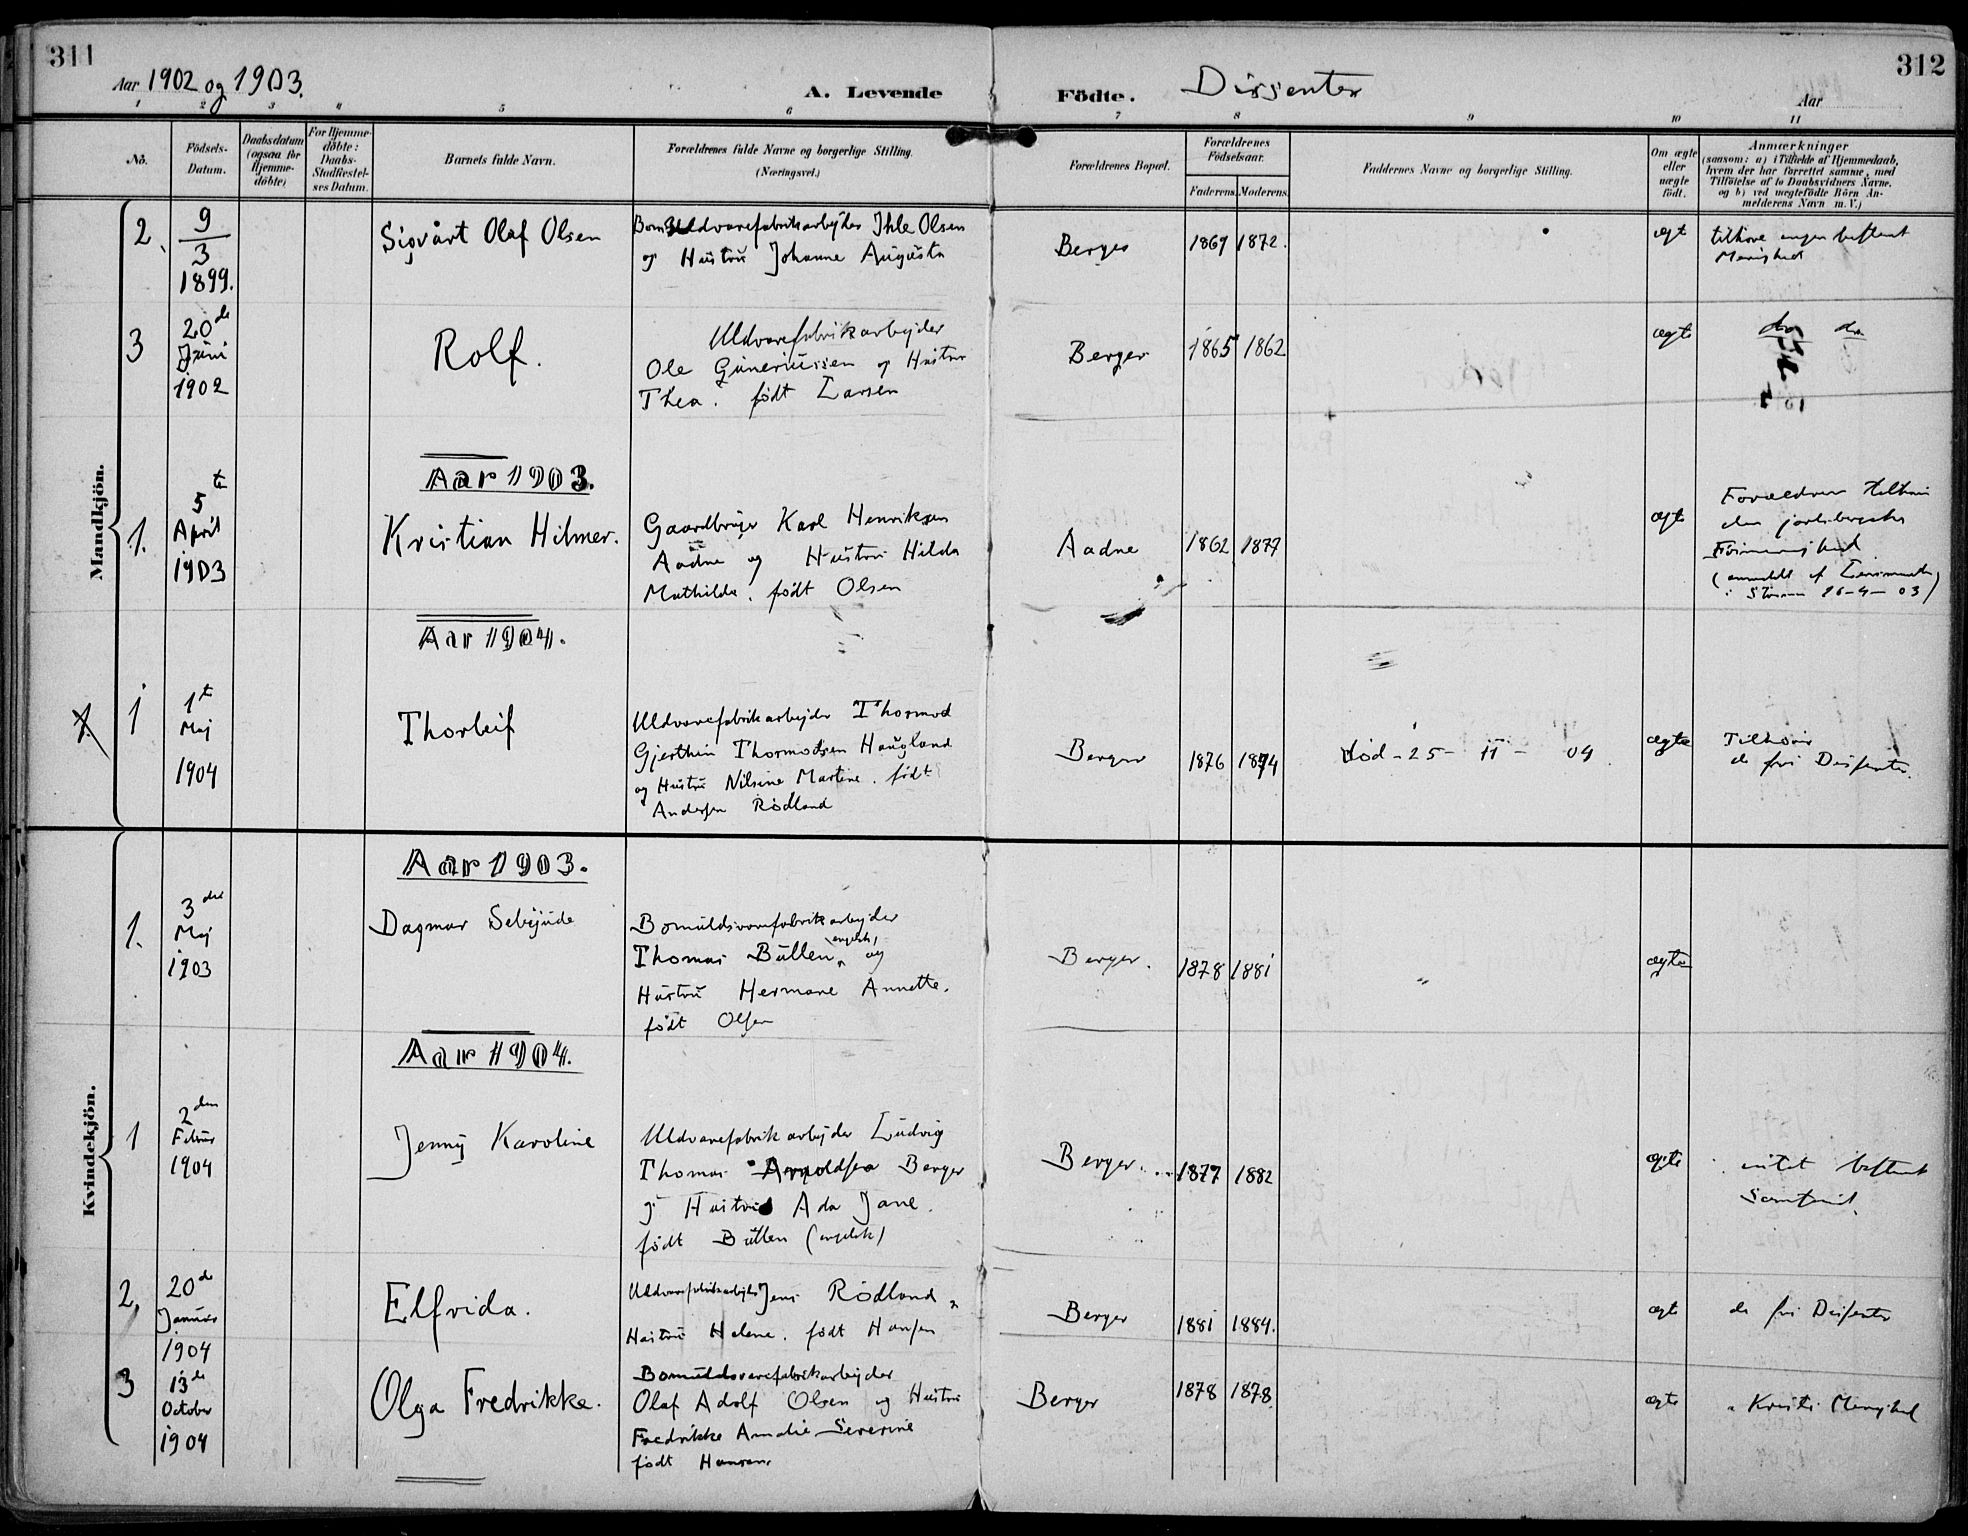 311
312
Aar 1902 og 1903.
A. Levende
Födte.
Dissenter
Aar
1 2 3 4 5 6 7 8 9 10 11
No.
Födsels-
Datum.
Daabsdatum
(ogsaa for
Hjemme-
döbte)
For Hjemme-
döbte:
Daabs-
Stadfæstel-
ses Datum.
Barnets fulde Navn.
Forældrenes fulde Navne og borgerlige Stilling.
(Næringsvei.)
Forældrenes Bopæl.
Forældrenes
Födselsaar.
Faderens. Moderens.
Faddernes Navne og borgerlige Stilling.
Om ægte
eller
uægte
födt.
Anmærkninger
(saasom: a) i Tilfælde af Hjemmedaab,
hvem der har forrettet samme, med
Tilföielse af to Daabsvidners Navne.
og b) ved uægtefödte Börn An-
melderens Navn m. V.)
Mandkjön.
2.
9
3
1899.
Sigvart Olaf Olsen
Bomuldvarefabrikarbejder Ihle Olsen
og Hustru Johanne Augusta
Berger
1869 1872.
ægte
tilhøre ingen bestemt
Menighed
3
20de
Juni
1902
Rolf.
Uldvarefabrikarbejder
Ole Guneriussen og Hustru
Thea. født Larsen
Berger
1865 1862
ægte
do do
Aar 1903.
1.
5te
April
1903
Kristian Hilmer.
Gaardbruger Karl Henriksen
Aadne og Hustru Hilda
Mathilde. født Olsen
Aadne
1862 1877
ægte
Forældrene tilhører
den jarlsbergske
Frimenighed
(anmeldt af Lensmanden
i 26-4-03)
Aar 1904.
1
1te
Maj
1904
Thorleif
Uldvarefabrikarbejder Thormod
Gjerthin Thormodsen Haugland
og Hustru Nilsine Martine. født
Andersen Rødland
Berger
1876 1874
død - 25 - 11 - 04
ægte
Tilhører
de fri Dissenter.
Kvindekjön.
Aar 1903.
1.
3die
Maj
1903
Dagmar
Bomuldsvarefabrikarbejder
Thomas Bullen (engelsk) og
Hustru Hermane Annette.
født Olsen
Berger.
1878 1881
ægte
Aar 1904.
1
2den
Februar
1904
Jenny Karoline
Uldvarefabrikarbejder Ludvig
Thomas Arnoldsen Berger
og Hustru Ada Jane.
født Bullen (engelsk)
Berger
1877 1882
ægte
intet bestemt
Samfund.
2.
20de
Januar
1904
Elfrida.
Uldvarefabrikarbejder Jens Rødland
Hustru Helene. født Hansen
Berger
1881 1884.
ægte
de fri Dissenter
3
13de
October
1904
Olga Fredrikke.
Bomuldsvarefabrikarbejder
Olaf Adolf Olsen og Hustru
Fredrikke Amalie Severine
født Hansen
Berger
1878 1878.
ægte
" Kristi Menighed